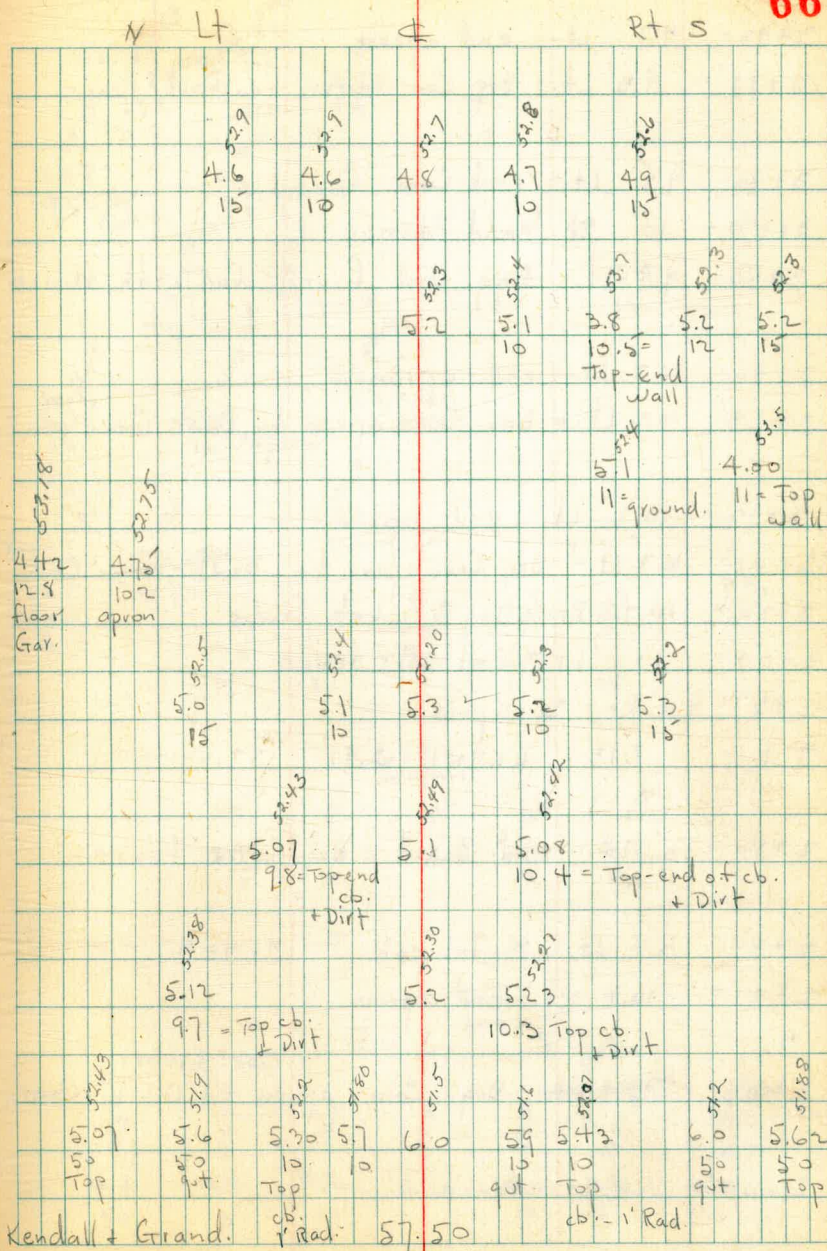 66
N Lt ℄ Rt. S
52.9 52.9 52.7 52.8 52.6
4.6 4.6 4.8 4.7 4.9
15 10 10 15
52.3 52.4 53.7 52.3 52.3
5.2 5.1 3.8 5.2 5.2
10 10.5= 12 15
Top-end
wall
52.4 53.5
5.1 4.00
11= ground. 11= Top
wall
53.18 52.75
4.42 4.75
12.8 10.2
floor apron
Gar.
52.5 52.4 52.20 52.3 52.2
5.0 5.1 5.3 5.2 5.3
15 10 10 15
52.43 52.49 52.42
5.07 5.1 5.08
9.8=Top-end 10.4 = Top-end of cb.
cb. + Dirt
+ Dirt
52.38 52.30 52.27
5.12 5.2 5.23
9.7 = Top cb. 10.3 Top cb.
+ Dirt + Dirt
52.43 51.9 52.2 51.80 51.5 51.6 52.07 51.2 51.88
5.07 5.6 5.30 5.7 6.0 5.9 5.43 6.0 5.62
50 50 10 10 10 10 50 50
Top gut Top gut Top gut Top
cb. cb. - 1' Rad.
Kendall + Grand. 1' Rad. 57.50